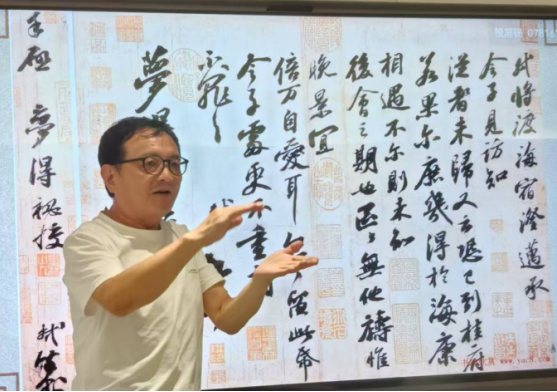 軾將渡海宿澄邁承
令子見訪知
從者未歸又云恐已到桂府
若果尔庶幾得於海康
相遇不尔則未知
後會之期也區〻無他禱惟
晚景宜
倍万自愛耳 留此帋
令子處更不重
不罪〻
夢
手啓 夢得秘校